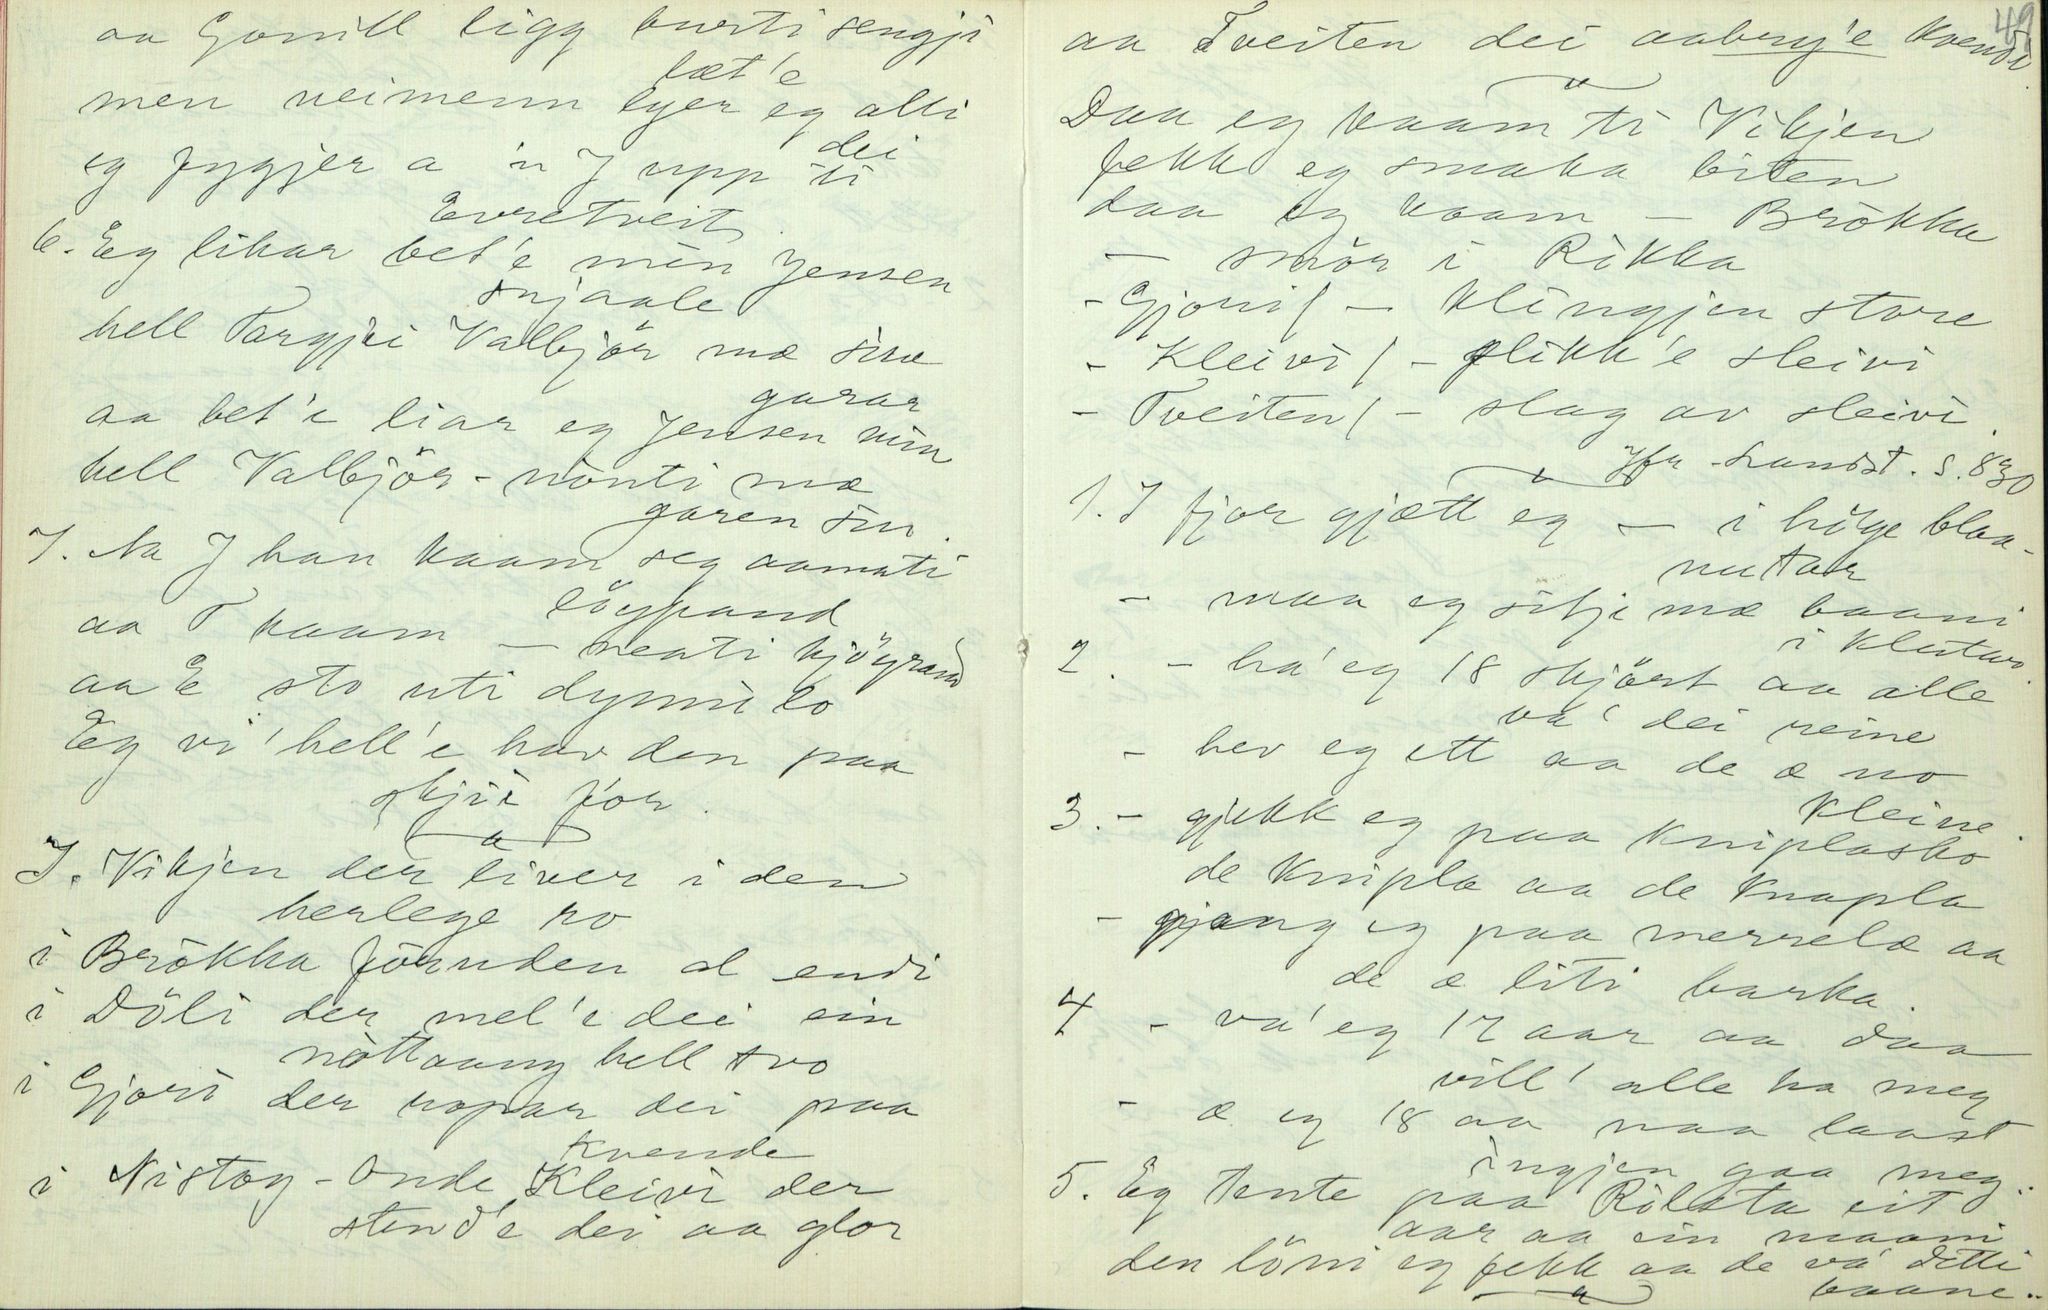 aa Gonill ligg burti sengji
men neimenn lyer eg alli
læt'e
eg fygjer a 'n J upp ti
dei
Evretveit
6. Eg likar bet'e min Jensen
snjaale
hell Torgjei Valbjör mæ sine
garar
aa bet'e liar eg Jensen min
hell Valbjör-nonti mæ
garen sin.
7. Aa J han kaam seg aamati
löypand
aa T kaam — neati kjöyrand
aa E sto uti dynni lo
Eg vi' hell'e hav den paa
skjii for.
J. Vikjen der liver i den
herlege ro
i Brökka förnuden al endi
i Döli der mel'e dei ein
nöttaang hell tvo
i Gjori der ropar dei paa
kvende
i Nistog-Onde Kleivi der
stend'e dei aa glor
49
aa Tveiten dei aaberg'e kvendi.
Daa eg kaam ti Vikjen
fekk eg smaka biten
daa eg kaam — Brökka
— smör i Rikka
- Gjori / — klingjen store
- Kleivi / — slikk'e sleivi
- Tveiten / — slag av sleivi.
Jfr Landst. s. 830
1. I fjor gjætt eg — i höge blaa-
nutar
- maa eg sitje mæ baani
i klutar.
2. - ha' eg 18 skjört aa alle
va' dei reine
- hev eg ett aa de æ no
kleine.
3. - gjekk eg paa kniplasko
de knipla aa de knapla
- gjeng eg paa merrelæ aa
de æ liti barka.
4 - va' eg 17 aar aa daa
vill' alle ha meg
- æ eg 18 aa naa laast
ingjen gaa meg.
5. Eg tente paa Rölsta eit
aar aa ein maani
den löni eg fekk aa de va' detti
baane..